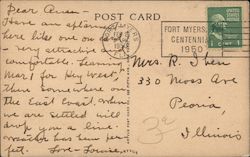 POST CARD
Dear Anna -
Have an apartment
here like one on
- very attractive &
comfortable. Leaving
Mar 1 for Key West,
then somewhere on
the East Coast. When
we are settled will
drop you a line.
Weather has been per-
fect. Love - Louise
FORT MYERS,
CENTENNIAL
1950
1 CENT 1
Mrs. R.
330 Moss Ave
Peoria,
Illinois